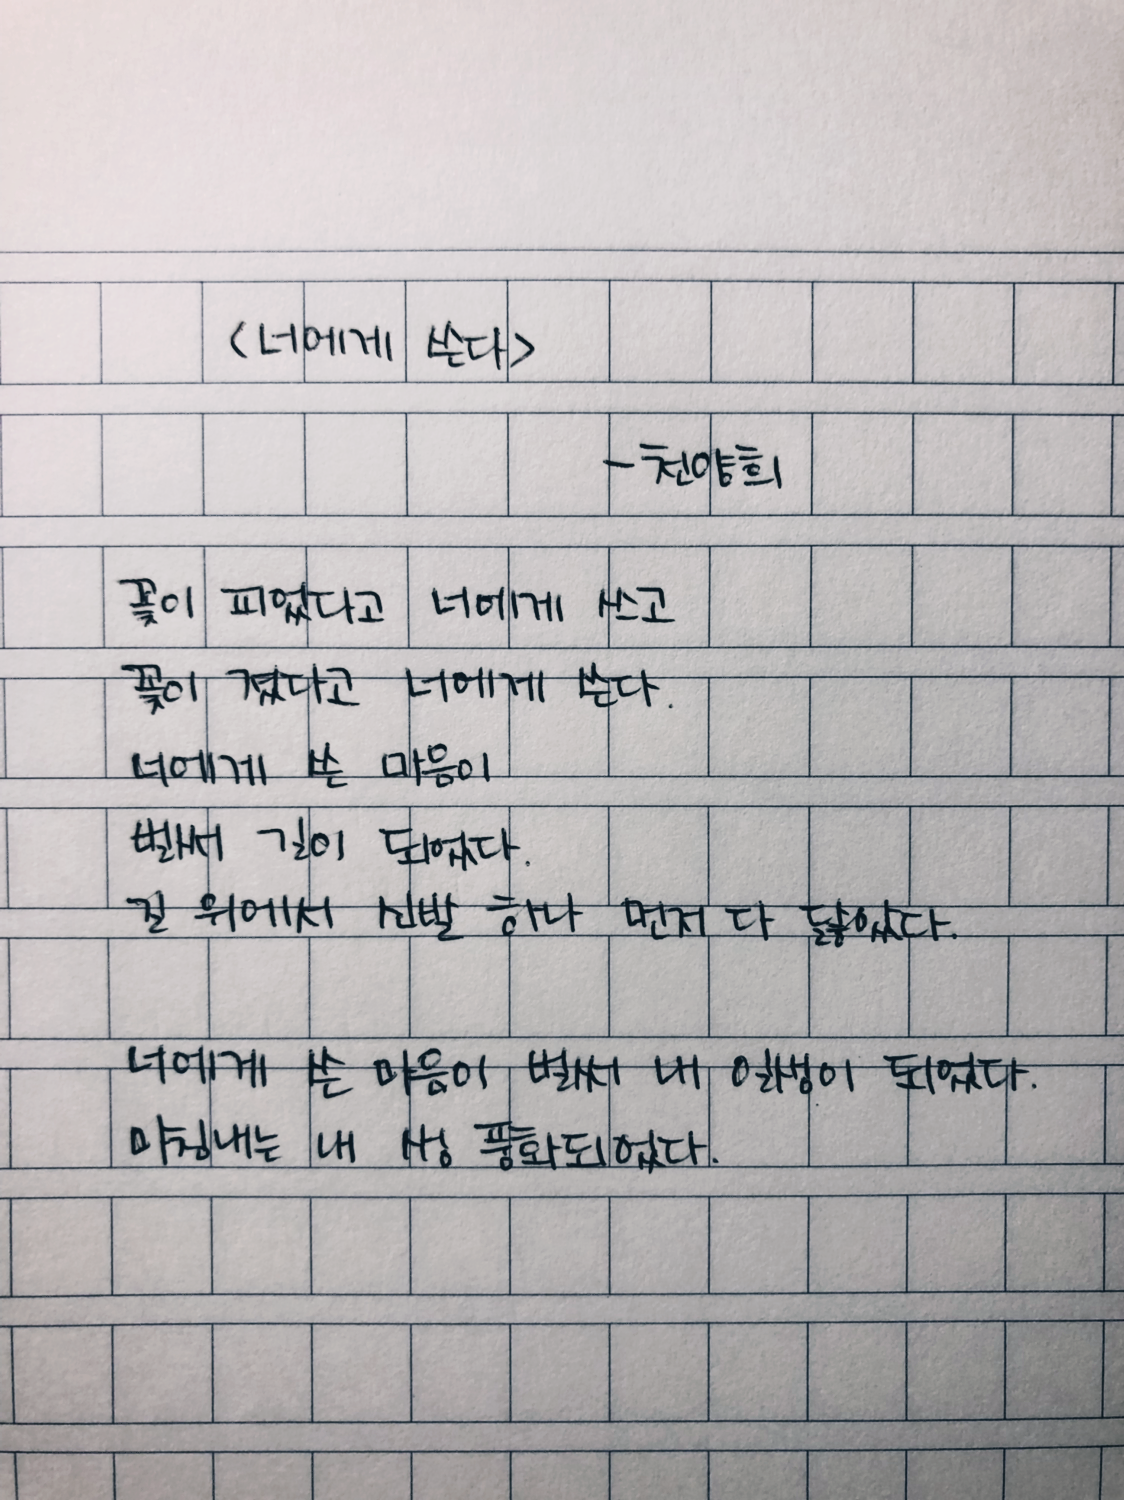 <너에게 쓴다>
-천양희
꽃이 피었다고 너에게 쓰고
꽃이 졌다고 너에게 쓴다.
너에게 쓴 마음이
벌써 길이 되었다.
길 위에서 신발 하나 먼저 다 닳았다.
너에게 쓴 마음이 벌써 내 일생이 되었다.
마침내는 내 생 풍화되었다.